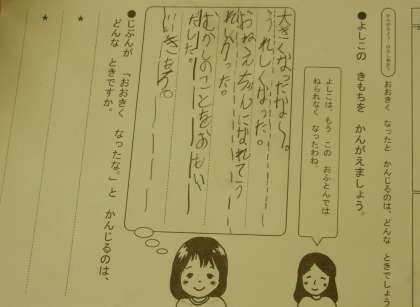 おおきく なったと かんじるのは、どんな ときでしょう
●よしこの きもちを かんがえましょう。
よしこは もう この おふとんでは
ねられなく なったわね。
大きくなったな〜。
うれしくなった。
おねえちゃんになれてう
れしかった。
むかしのことをおもい
だした。
いいきもち。
●じぶんが 「おおきく なったな。」と かんじるのは、
どんな ときですか。
*
*